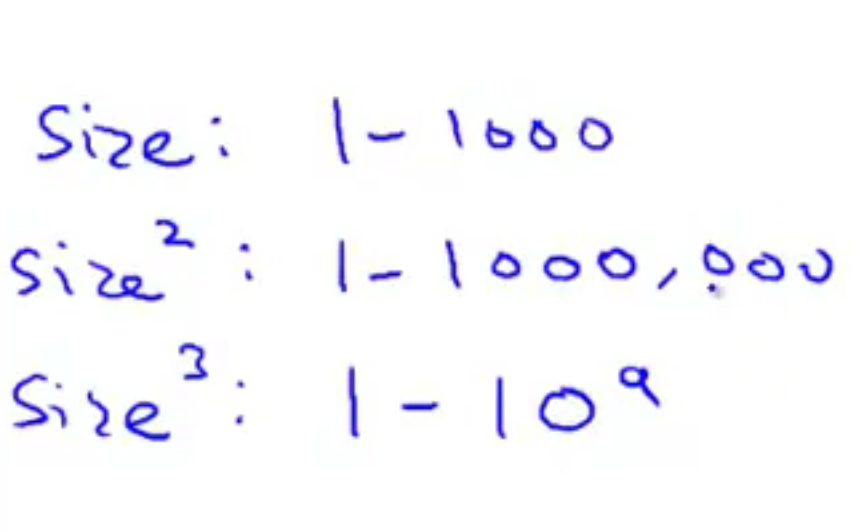 Size: 1-1000
Size²: 1-1000,000
Size³: 1-10⁹